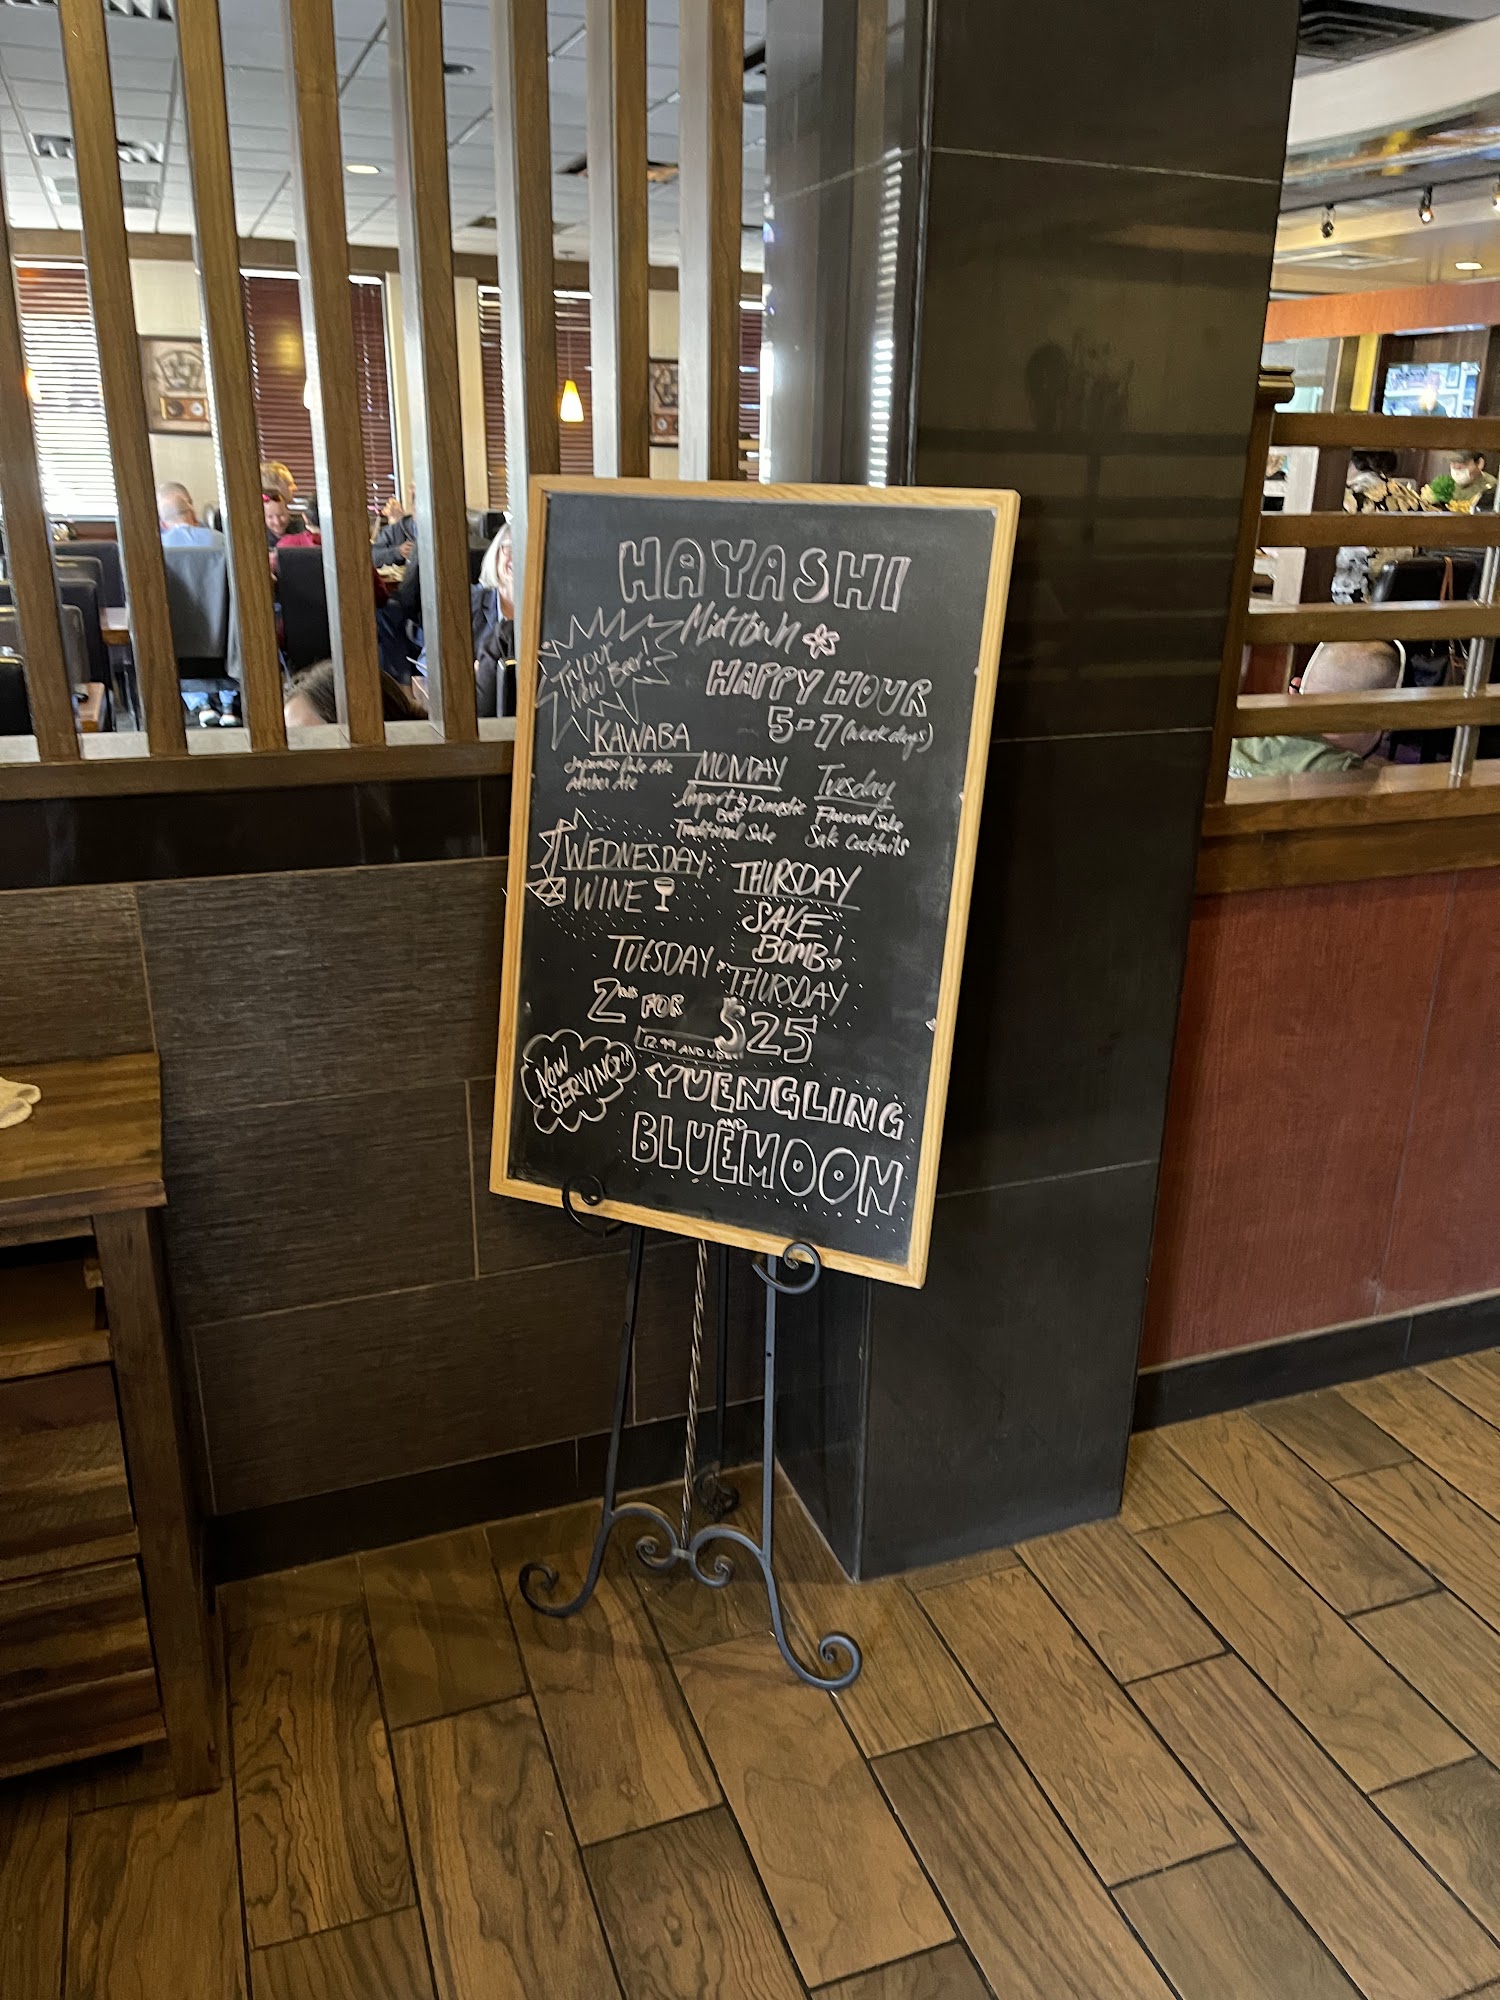 HAYASHI
Midtown
Try our
New Beer!
HAPPY HOUR
5-7 (weekdays)
KAWABA
Japanese Pale Ale
Amber Ale
MONDAY
Import & Domestic
Beer
Traditional Sake
Tuesday
Flavored Sake
Sake Cocktails
WEDNESDAY
WINE
THURSDAY
SAKE
BOMB!
TUESDAY
THURSDAY
2 FOR $25
12.99 AND UP
NOW
SERVING!!
YUENGLING
AND
BLUEMOON